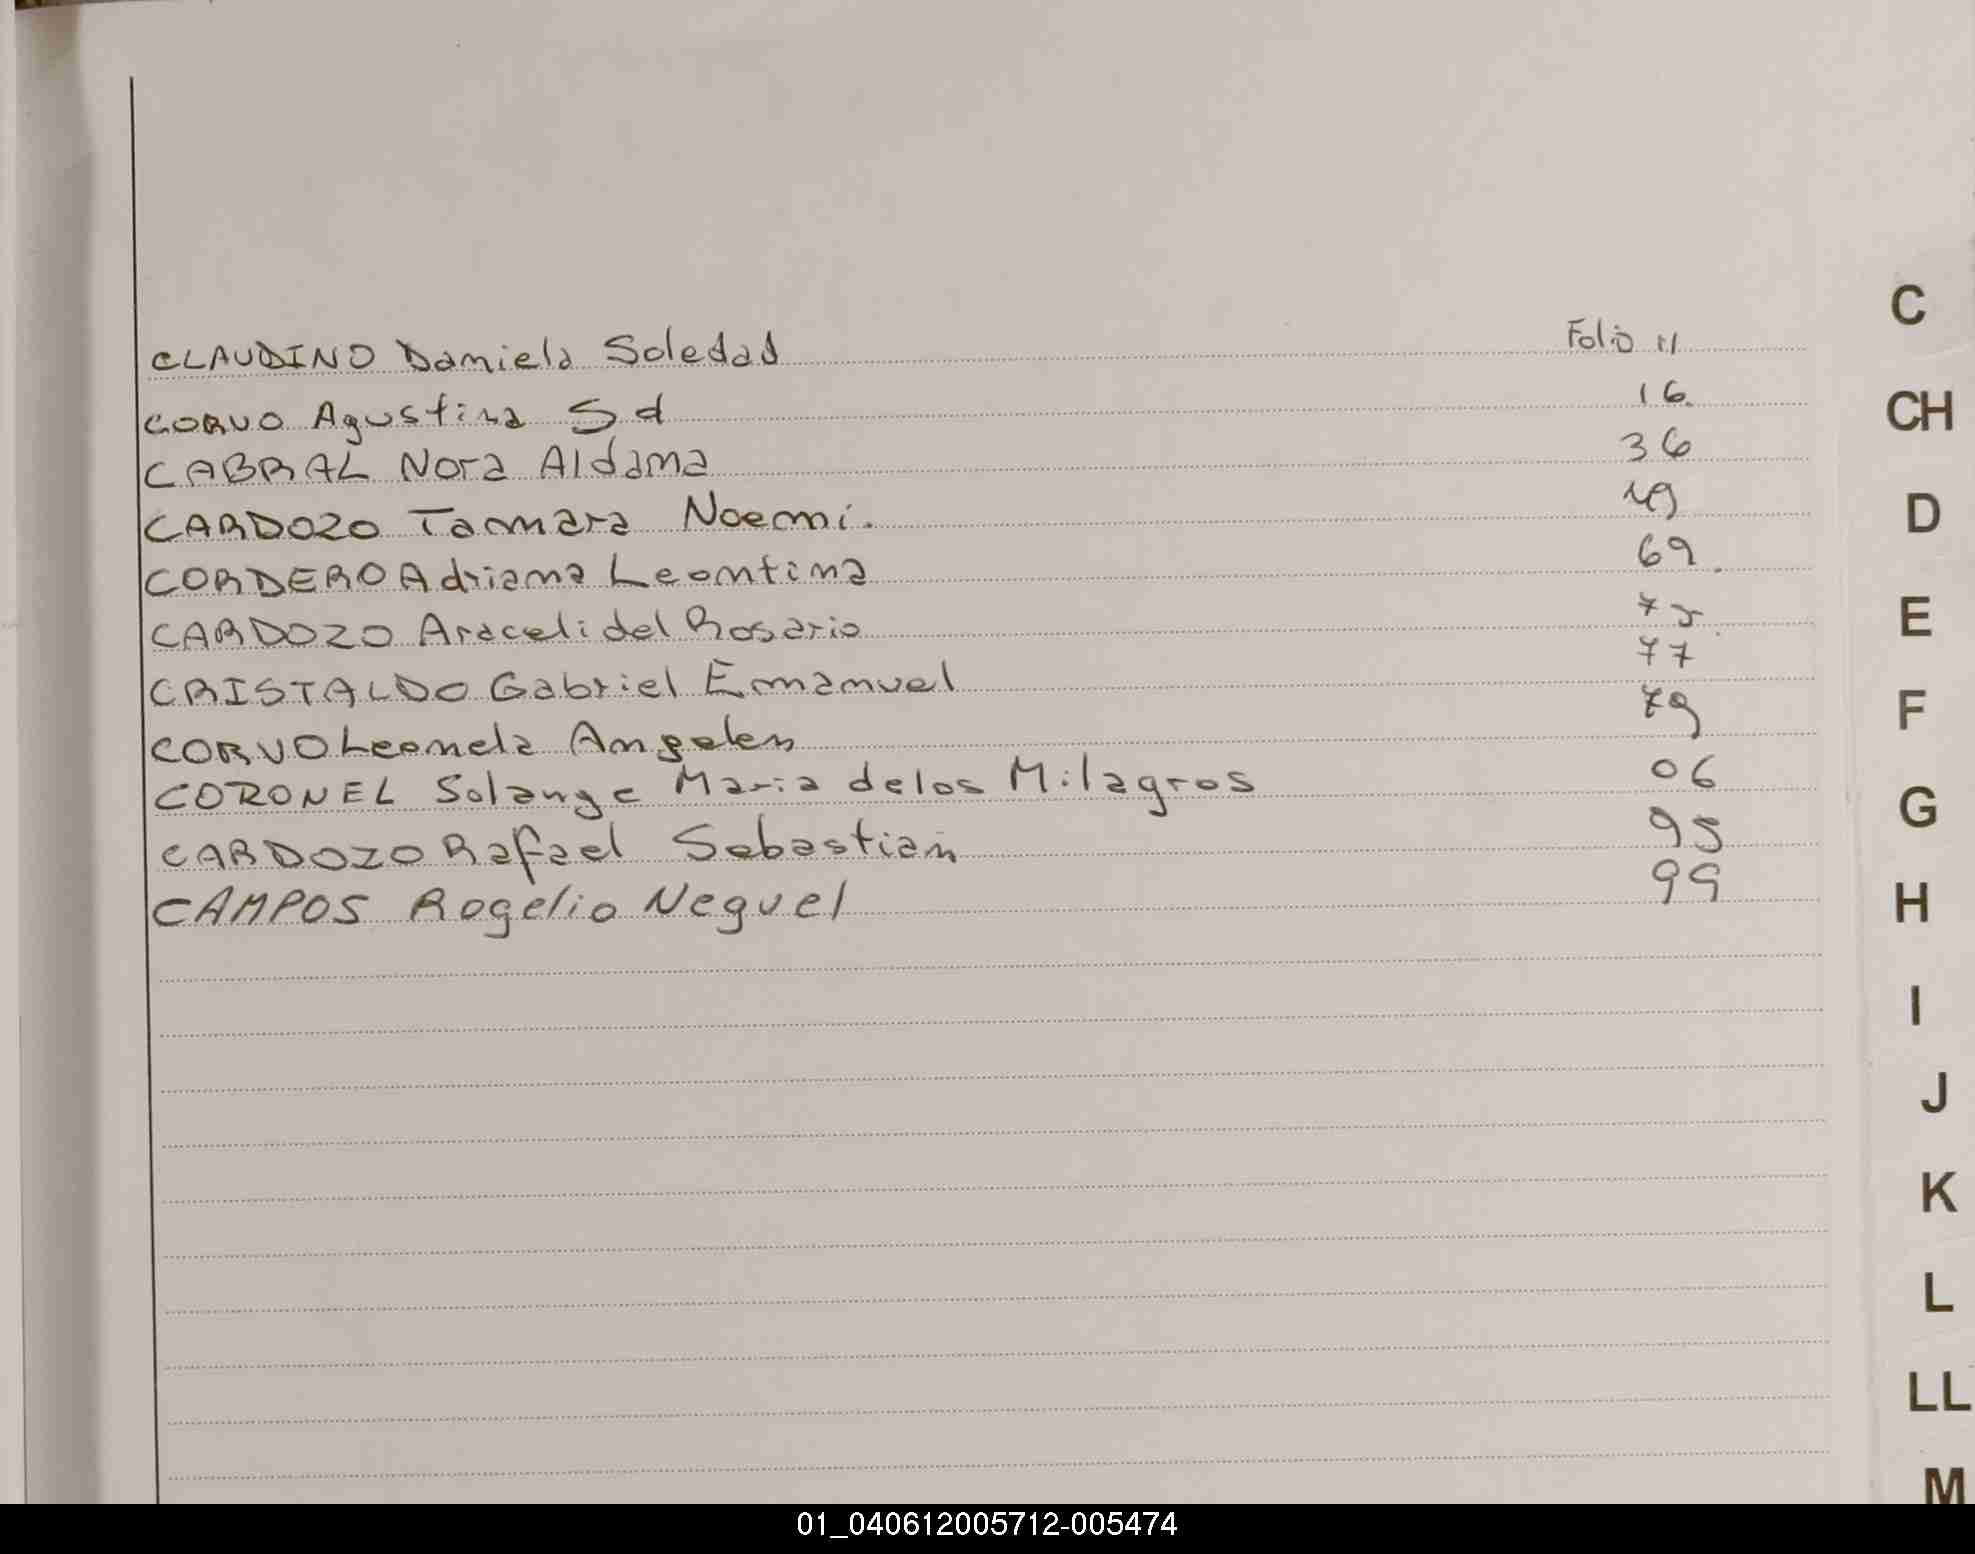 CLAUDINO Daniela Soledad Folio 11
CORVO Agustina Sd 16.
CABRAL Nora Aldana 36
CARDOZO Tamara Noemi. 49
CORDERO Adriana Leontina 69.
CARDOZO Araceli del Rosario 75.
CRISTALDO Gabriel Emanuel 77
CORVO Leonela Angeles 79
CORONEL Solange Maria de los Milagros 06
CARDOZO Rafael Sebastian 95
CAMPOS Rogelio Neguel 99
C
CH
D
E
F
G
H
I
J
K
L
LL
M
01_040612005712-005474